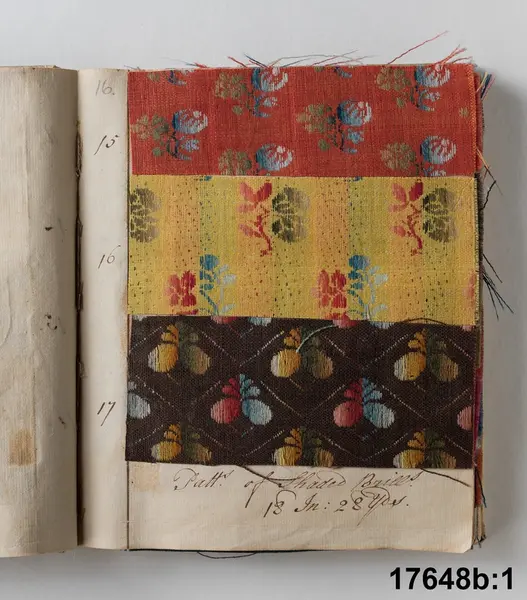 16.
15
16
17
Patt.s of Shaded Brills
18 In: 28 Yds.
17648b:1